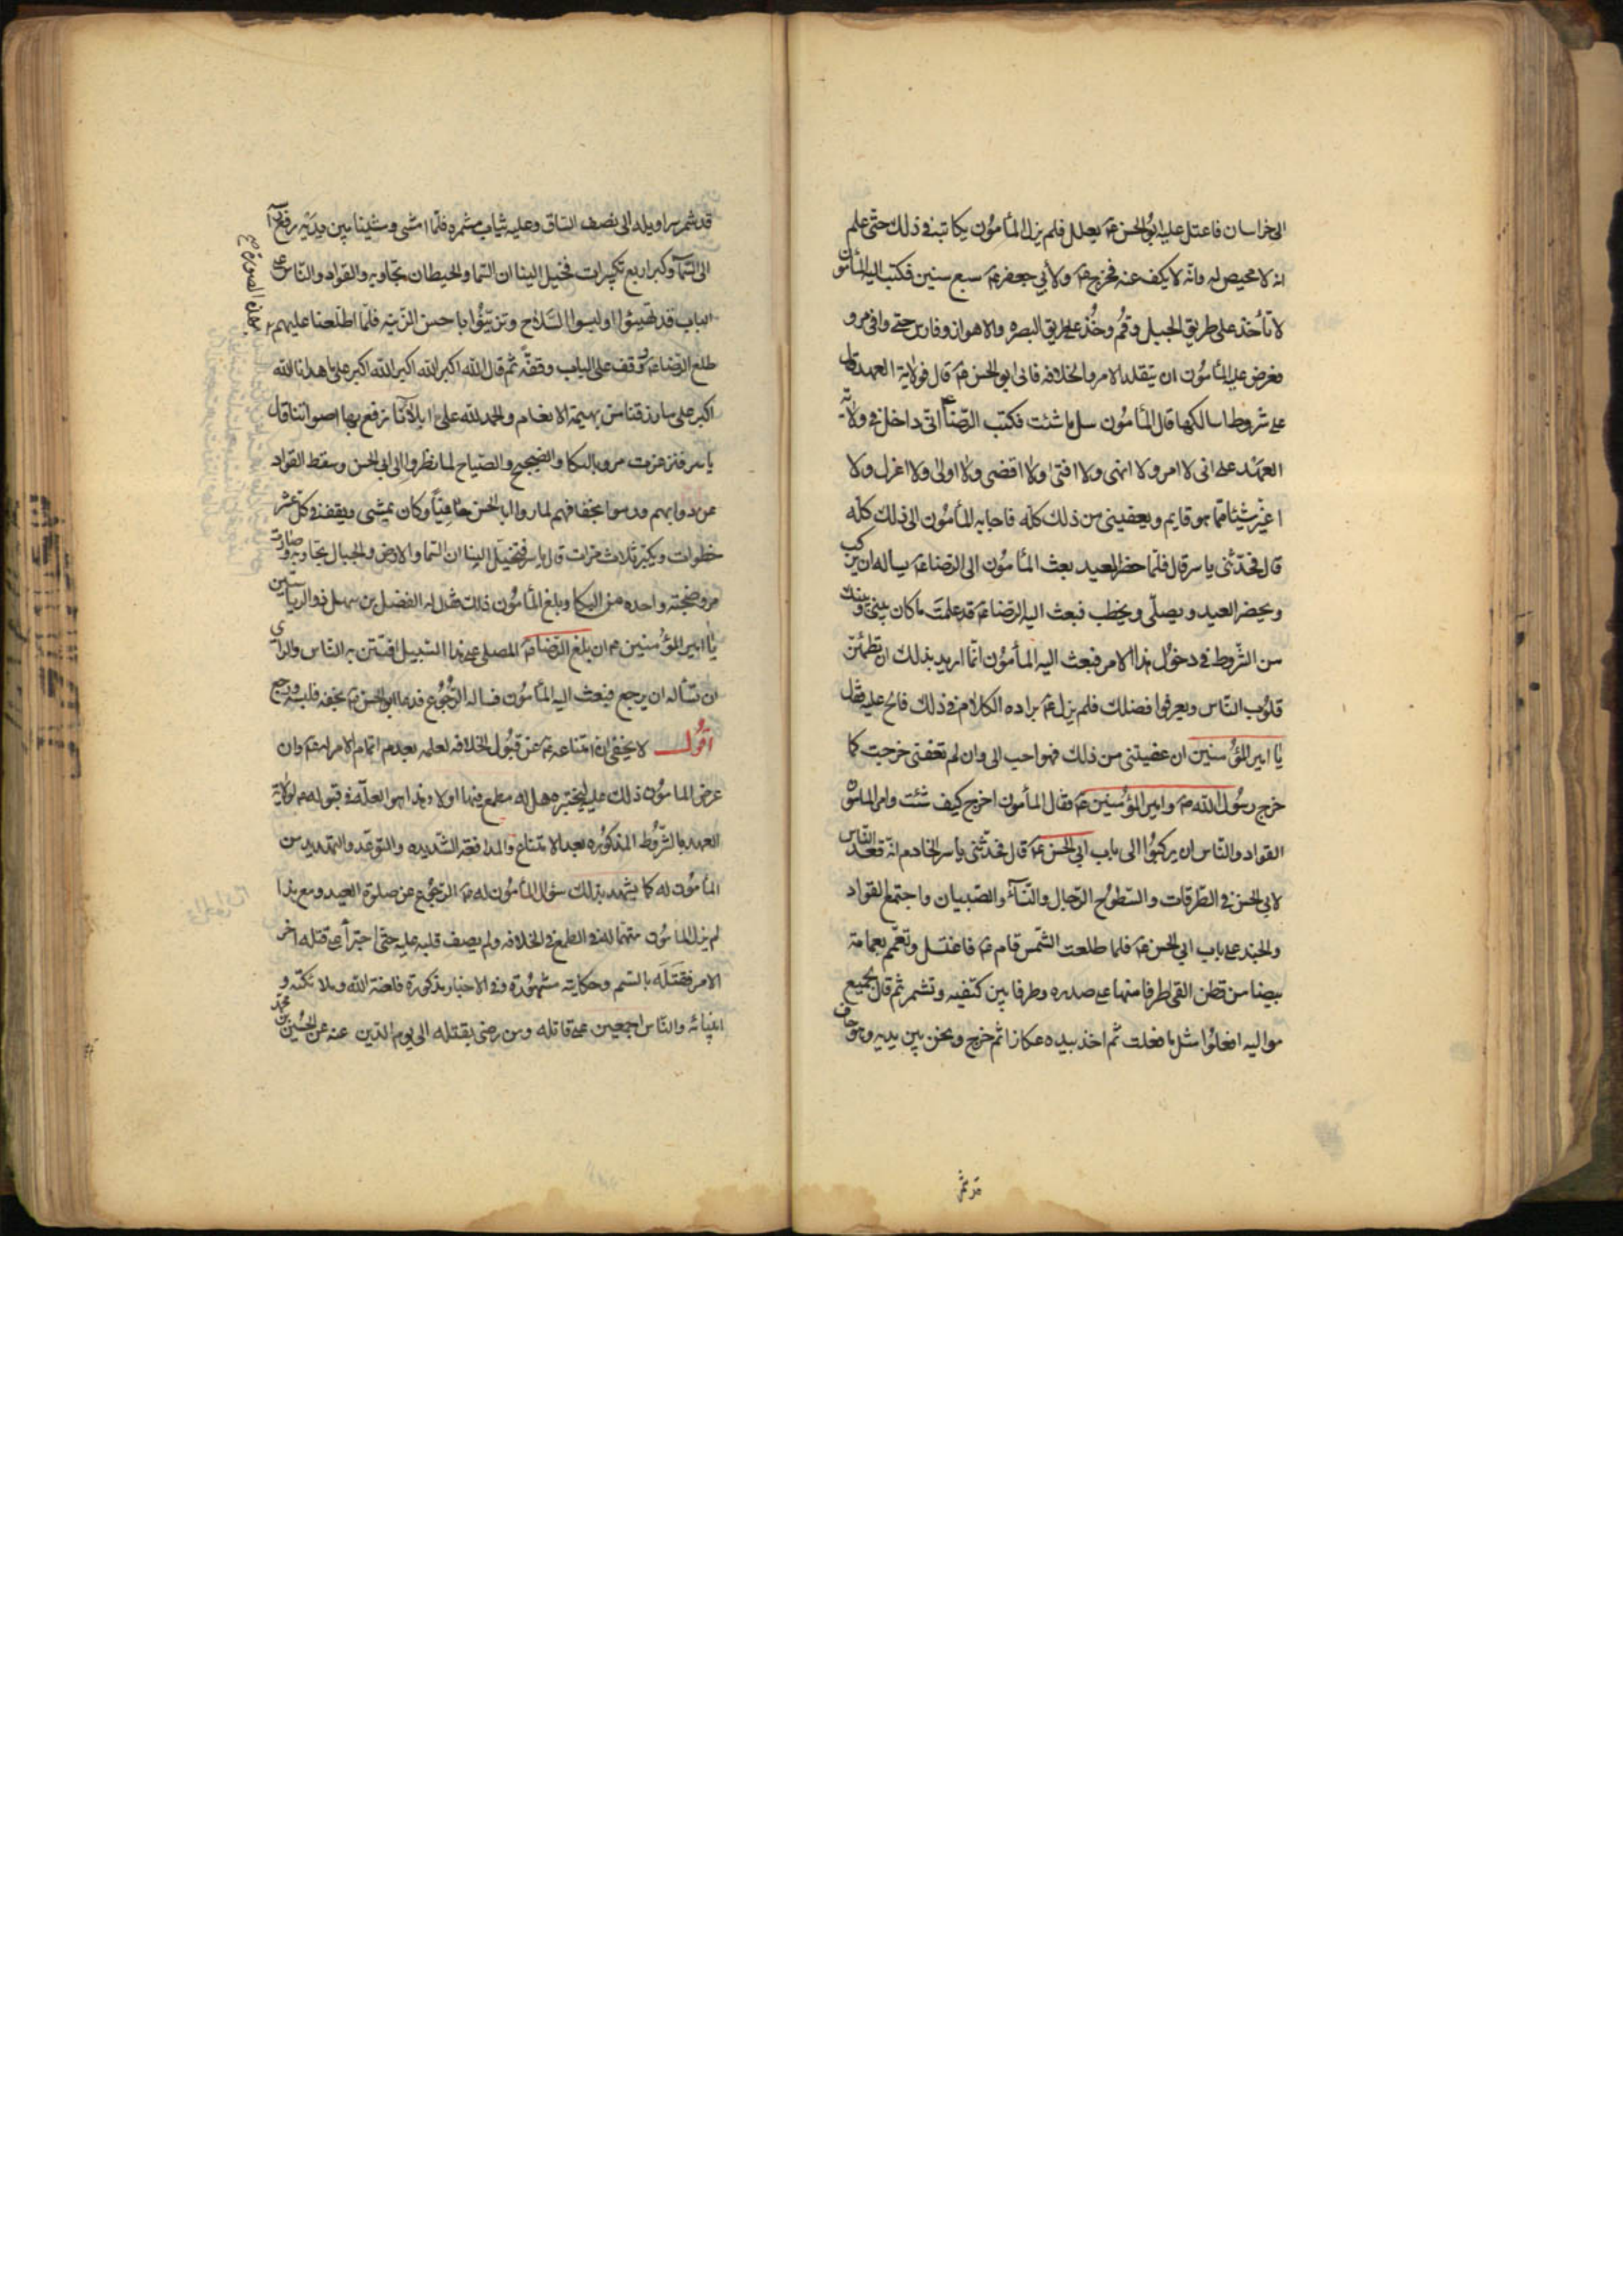 الى خراسان فاعتل عليه ابو الحسن ع م بعلل فلم يزل المأمون يكاتبه في ذلك حتى علم
انه لا محيص له وانه لا يكف عنه فخرج ع م ولأبي جعفر ع م سبع سنين فكتب اليه المأمون
لا تأخذ على طريق الجبل وقم وخذ على طريق البصره والاهواز وفارس حتى وافى مرو
فعرض عليه المأمون ان يتقلد الامر والخلافه فابى ابو الحسن ع م قال فولاية العهد قال
على شروط اسالكها قال المأمون سل ما شئت فكتب الرضا ع انى داخل في ولاية
العهد على انى لا امر ولا انهى ولا افتى ولا اقضى ولا اولى ولا اعزل ولا
اغير شيئا مما هو قايم ويعفينى من ذلك كله فاجابه المأمون الى ذلك كله
قال فحدثنى ياسر قال فلما حضر العيد بعث المأمون الى الرضا ع م يساله ان يركب
ويحضر العيد ويصلى ويخطب فبعث اليه الرضا ع م قد علمت ما كان بينى وبينك
من الشروط في دخول هذا الامر فبعث اليه المأمون انما اريد بذلك ان تطمئن
قلوب الناس ويعرفوا فضلك فلم يزل ع م يراده الكلام في ذلك فالح عليه فقال
يا امير المؤمنين ان عفيتنى من ذلك فهو احب الى وان لم تعفنى خرجت كما
خرج رسول الله ص م وامير المؤمنين ع م فقال المأمون اخرج كيف شئت وامر المامون
القواد والناس ان يركبوا الى باب ابي الحسن ع م قال فحدثنى ياسر الخادم انه قعد الناس
لابي الحسن في الطرقات والسطوح الرجال والنسآء والصبيان واجتمع القواد
والجند على باب ابي الحسن ع م فلما طلعت الشمس قام ع م فاغتسل وتعمم بعمامة
بيضا من قطن القى طرفا منها على صدره وطرفا بين كتفيه وتشمر ثم قال لجميع
مواليه افعلوا مثل ما فعلت ثم اخذ بيده عكازا ثم خرج ونحن بين يديه وهو حاف
قد شمر
قد شمر سراويله الى نصف الساق وعليه ثياب مشمره فلما مشى ومشينا بين يديه رفع رأسه
الى السمآ وكبر اربع تكبيرات فخيل الينا ان السما والحيطان تجاوبه والقواد والناس على
الباب قد تهيئوا ولبسوا السلاح وتزينوا باحسن الزينه فلما اطلعنا عليهم
بهذه الصورة ع
طلع الرضا ع م وقف على الباب وقفة ثم قال الله اكبر الله اكبر الله اكبر على ما هدانا الله
اكبر على ما رزقنا من بهيمة الانعام والحمد لله على ما ابلانا نرفع بها اصواتنا قال
ياسر فتزعزعت مرو بالبكا والضجيج والصياح لما نظروا الى ابي الحسن وسقط القواد
عن دوابهم ورموا بخفافهم لما راوا ابا الحسن حافيا وكان يمشى ويقف في كل عشر
خطوات ويكبر ثلاث مرات قال ياسر فتخيل الينا ان السما والارض والجبال تجاوبه وصارت
مرو ضجته واحده من البكا وبلغ المأمون ذلك فقال له الفضل بن سهل ذو الرياستين
يا امير المؤمنين ان بلغ الرضا ع م المصلى على هذا السبيل افتتن به الناس والراى
ان تسأله ان يرجع فبعث اليه المأمون فساله الرجوع فدعا ابو الحسن ع م بخفه فلبسه ورجع
اقول لا يخفى ان امتناعه ع م عن قبول الخلافه لعلمه بعدم اتمام الامر له ع م وان
عرض المامون ذلك عليه ليختبره هل له مطمع فيها اولا وهذا هو العلة في قبوله ع م لولاية
العهد بالشروط المذكوره بعد الامتناع والمدافعة الشديده والتوعد والتهديد من
المأمون له كما يشهد بذلك سؤال المأمون له ع م الرجوع عن صلوة العيد ومع هذا
لم يزل المامون متهما له في الطمع في الخلافه ولم يصف قلبه عليه حتى اجترأ على قتله اخر
الامر فقتله بالسم وحكايته مشهورة وفي الاخبار مذكورة فلعنة الله وملائكته و
انبيائه والناس اجمعين على قاتله ومن رضى بقتله الى يوم الدين عنه عن الحسين بن محمد